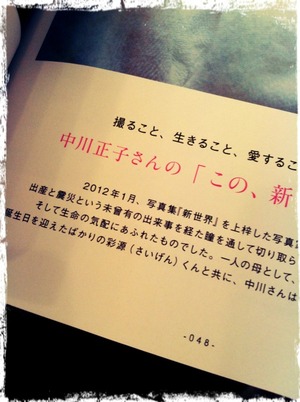 撮ること、生きること、愛するこ
中川正子さんの「この、新
2012年1月、写真集『新世界』を上梓した写真
出産と震災という未曾有の出来事を経た瞳を通して切り取ら
そして生命の気配にあふれたものでした。一人の母として、
誕生日を迎えたばかりの彩源（さいげん）くんと共に、中川さんは
-048-